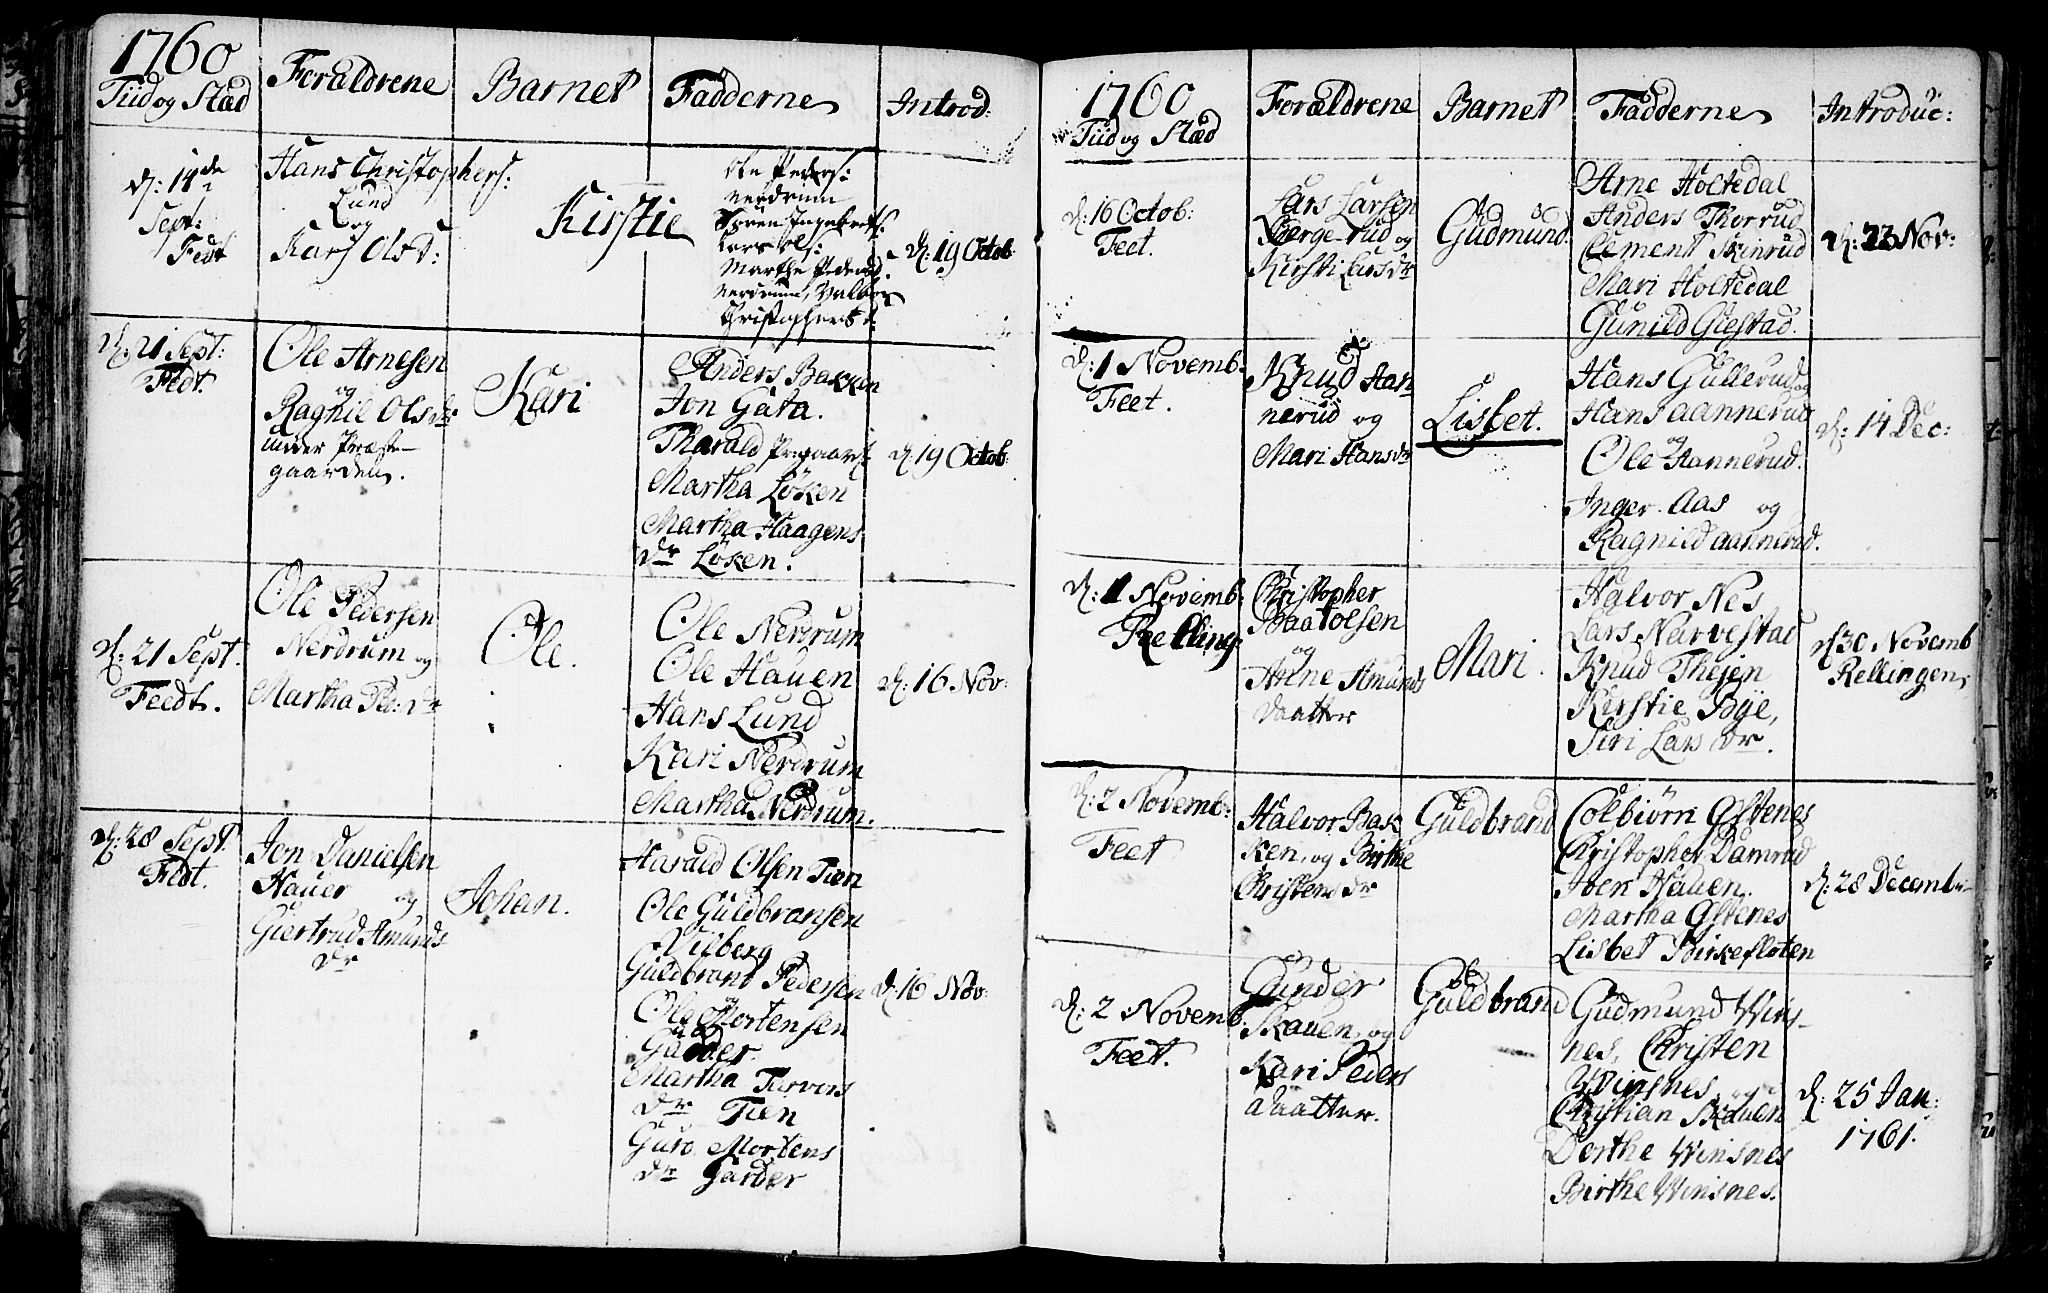 1760
Tiid og Stæd
Forældrene
Barnet
Fadderne
Introd:
d: 14de
Sept:
Fedt
Hans Christophers:
Lund
og
Kari Olsd:
Kirstie
Ole Peders:
Nerdrum
Søren Ingebrets:
Lars Ols:
Marthe Pedersd.
Nerdrum, Valbor
Christophersd:
d: 19 Octob:
d: 21 Sept:
Fedt.
Ole Arnesen
og
Ragnil Olsdr:
under Præste-
gaarden.
Kari
Anders Bakken
Jon Gata.
Tharald Prgaard
Martha Løken
Martha Haagens
dr Løken.
d: 19 Octob:
d: 21 Sept.
Feedt.
Ole Pedersen
Nerdrum og
Martha Ped: dr
Ole.
Ole Nerdrum
Ole Hauen
Hans Lund
Kari Nerdrum
Martha Nerdrum.
d: 16 Nov:
d: 28 Sept.
Fedt.
Jon Danielsen
Hauer og
Giertrud Amunds
dr
Johan.
Harald Olsen Tien
Ole Guldbransen
Vilberg
Guldbrant Pedersen
og
Ole Mortensen
Garder
Martha Turvors
dr Tien
Guro Mortens
dr Garder
d: 16 Nov:
1760
Tiid og Stæd
Forældrene
Barnet
Fadderne
Introduc:
d: 16 Octob:
Feet.
Lars Larsen
Bierge-rud og
Kirsti Larsdr
Gudmund.
Arne Holtedal
Anders Thorrud
Clement Skinrud
Mari Holtedal
Gunild Giestad.
d: 23 Nov:
d: 1 Novemb.
Feet.
Knud Han
nerud og
Mari Hansdr
Lisbet.
Hans Gullerud og
Hans aannerud
og
Ole Hannerud.
Inger Aas og
Ragnild aannerud.
d: 14 Dec:
d: 1 Novemb:
Relling
Christopher
Baatolsen
og
Anne Amunds
daatter
Mari.
Halvor Nes
Lars Narvestad
Knud Thejen
Kirstie Bye,
Siri Lars dr.
d 30 Novemb
Rellingen
d: 2 Novemb:
Feet
Halvor Bak
ken, og Birthe
Christensdr
Guldbrand
Colbiørn Østenes
Christopher Damrud
Joen Hauen.
Martha Østenes
Lisbet Birkefloten
d: 28 Decemb:
d: 2 Novemb.
Feet.
Gunder
Skauen, og
Kari Peders
daatter.
Guldbrand
Gudmund Wins-
nes, Christen
Winsnes, og
Christian Skauen
Dorthe Winsnes
Birthe Winsnes.
d: 25 Jan:
1761.